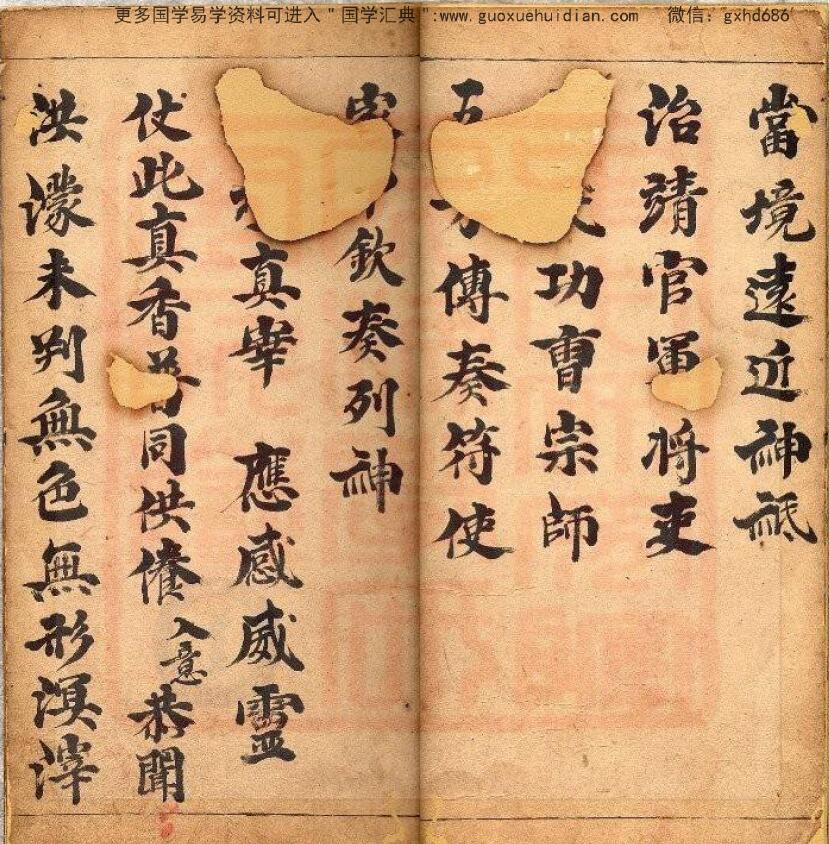 更多国学易学资料可进入＂国学汇典＂:www.guoxuehuidian.com 微信: gxhd686
當境遠近神祇
治靖官軍将吏
功曹宗師
五方傳奏符使
欽奏列神
真宰 應感威靈
仗此真香普同供養入意恭聞
洪濛未判無色無形溟滓